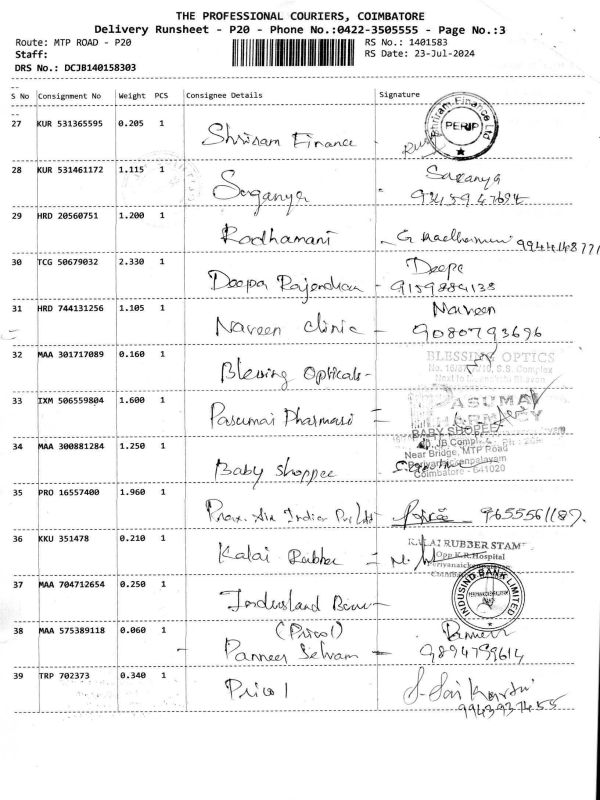 THE PROFESSIONAL COURIERS, COIMBATORE
Delivery Runsheet - P20 - Phone No.:0422-3505555 - Page No.:3
Route: MTP ROAD - P20 RS No.: 1401583
Staff: RS Date: 23-Jul-2024
DRS No.: DCJB140158303
S No Consignment No Weight PCS Consignee Details Signature
27 KUR 531365595 0.205 1 Shriram Finance - Shriram Finance Ltd PERIP
28 KUR 531461172 1.115 1 Saranya
29 HRD 20560751 1.200 1 Radhamani
30 TCG 50679032 2.330 1 Deepa Rajendran - Deepa
9159884138
31 HRD 744131256 1.105 1 Naveen Clinic - Naveen
9080793696
32 MAA 301717089 0.160 1 Blessing Opticals - BLESSING OPTICS
S.B. Complex
33 IXM 506559804 1.600 1 Pasumai Pharmasi = PASUMAI
PHARMACY
34 MAA 300881284 1.250 1 Baby Shoppee BABY SHOPEE
JB Complex
Near Bridge, MTP Road
Periyanaickenpalayam
Coimbatore - 641020
35 PRO 16557400 1.960 1 Prax. Air India Pvt Ltd
36 KKU 351478 0.210 1 Kalai Rubber = KALAI RUBBER STAMP
Opp K.R.Hospital
37 MAA 704712654 0.250 1 Indusland Bank - INDUSIND BANK LIMITED
38 MAA 575389118 0.060 1 (Pricol)
- Panneer Selvam - 9894799614
39 TRP 702373 0.340 1 Pricol
9943937455